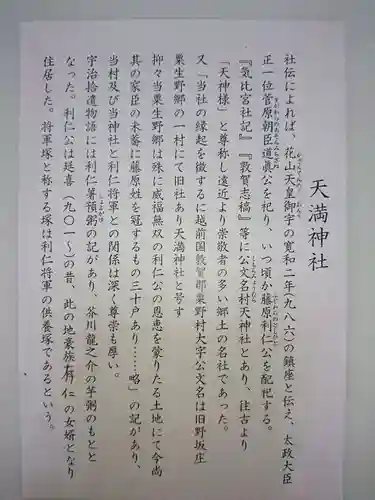 天満神社
社伝によれば、花山天皇御宇の寛和二年(九八六)の鎮座と伝え、太政大臣
正一位菅原朝臣道眞公を祀り、いつ頃か藤原利仁公を配祀する。
『氣比宮社記』『敦賀志稿』等に公文名村天神社とあり、往古より
「天神様」と尊称し遠近より崇敬者の多い郷土の名社であった。
又「当社の縁起を徴するに越前国敦賀郡粟野村大字公文名は旧野坂庄
粟生野郷の一村にて旧社あり天満神社と号す
抑々当粟生野郷は殊に威福無双の利仁公の恩恵を蒙りたる土地にて今尚
其の家臣の末裔に藤原姓を冠するもの三十戸あり……略」の記があり、
当村及び当神社と利仁将軍との関係は深く尊崇も厚い。
宇治拾遺物語には利仁署預粥の記があり、芥川龍之介の芋粥のもとと
なった。利仁公は延喜(九〇一〜)の昔、此の地豪族 仁の女婿となり
住居した。将軍塚と称する塚は利仁将軍の供養塚であるという。